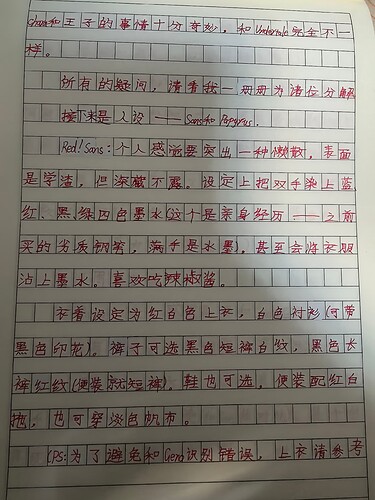 Chara和王子的事情十分奇妙，和Undertale完全不一
样。
所有的疑问，请看我一册册为诸位分解
接下来是人设——Sans和Papyrus.
Red!Sans:个人感觉要突出一种懒散，表面
是学渣，但深藏不露。设定上把双手染上蓝、
红、黑、绿四色墨水(这个是亲身经历——之前
买的劣质钢笔，满手是水墨)。甚至会将衣服
沾上墨水。喜欢吃辣椒酱。
衣着设定为红白色上衣，白色衬衫(可带
黑色印花)。裤子可选黑色短裤白纹，黑色长
裤红纹(便装就短裤)。鞋也可选，便装配红白
拖，也可穿淡色帆布。
(PS:为了避免和Geno识别错误，上衣请参考